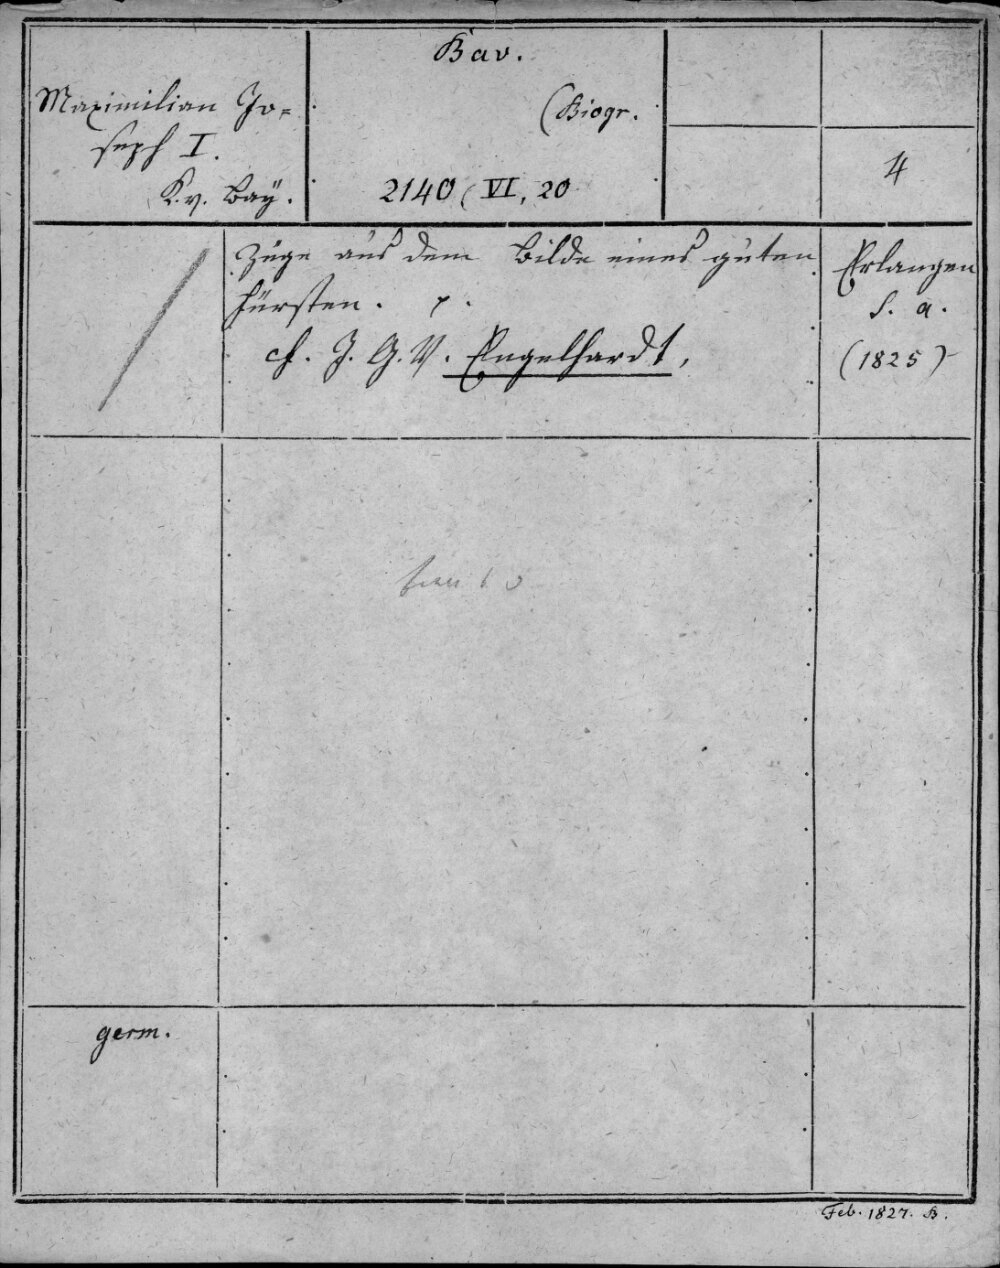 Bav.
Maximilian Jo=
seph I.
K. v. Baÿ.
(Biogr.
2140 (VI, 20
4
Züge aus dem Bilde eines guten
Fürsten. p.
cf. J. G. V. Engelhardt,
Erlangen
s. a.
(1825)
germ.
Feb. 1827. B.